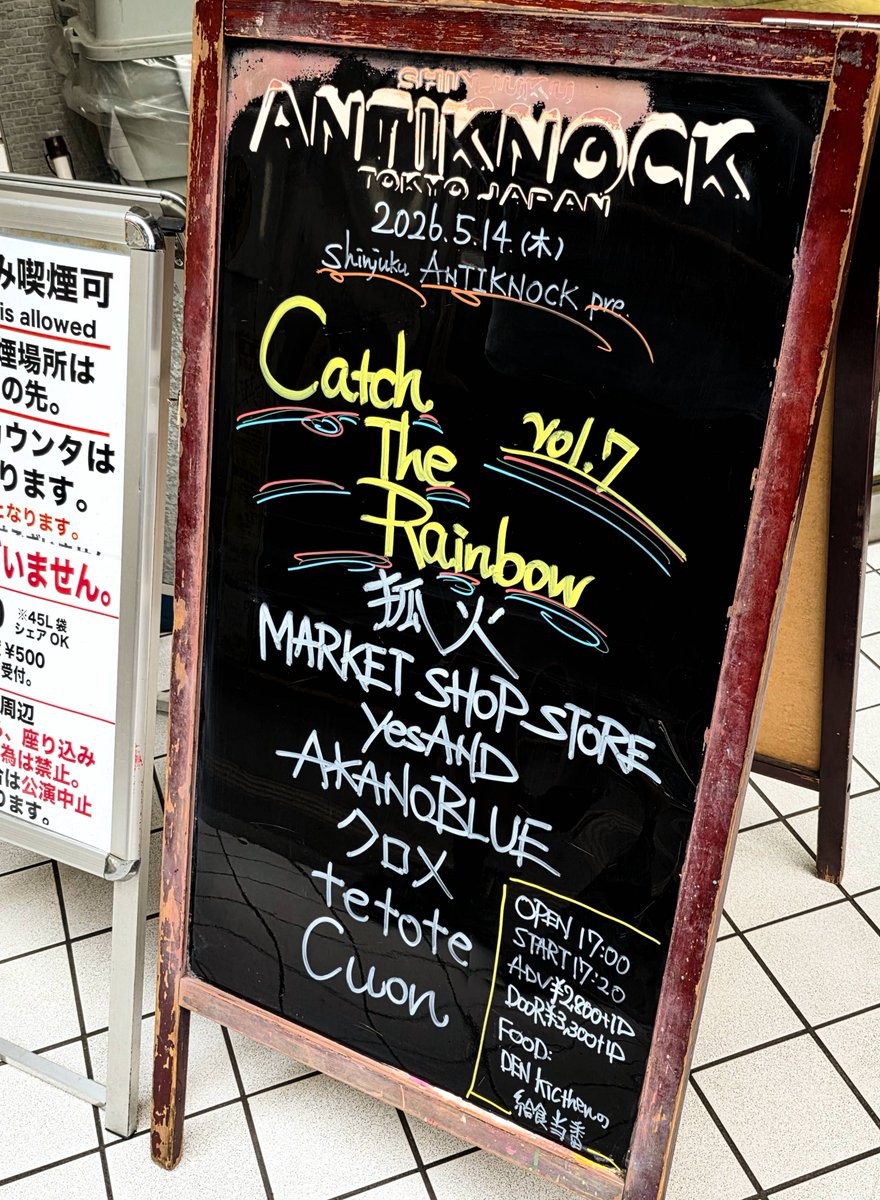 SHINJUKU
ANTIKNOCK
TOKYO JAPAN
2026.5.14.(木)
Shinjuku ANTIKNOCK pre.
Catch
The
Rainbow
vol.7
狐火
MARKET SHOP STORE
YesAND
AKANOBLUE
クロメ
tetote
Cuon
OPEN 17:00
START 17:20
ADV¥2,800+1D
DOOR¥3,300+1D
FOOD:
DEN kicthenの
給食当番
み喫煙可
is allowed
煙場所は
の先。
ウンタは
ります。
となります。
いません。
※45L袋
シェアOK
¥500
受付。
周辺
、座り込み
為は禁止。
は公演中止
ります。